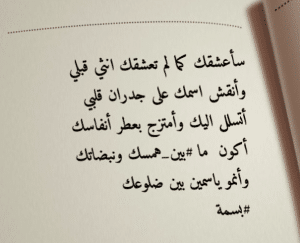 سأعشقك كما لم تعشقك انثى قبلي
وأنقش اسمك على جدران قلبي
أتسلل اليك وأمتزج بعطر أنفاسك
أكون ما #بين_همسك ونبضاتك
وأنمو ياسمين بين ضلوعك
#بسمة